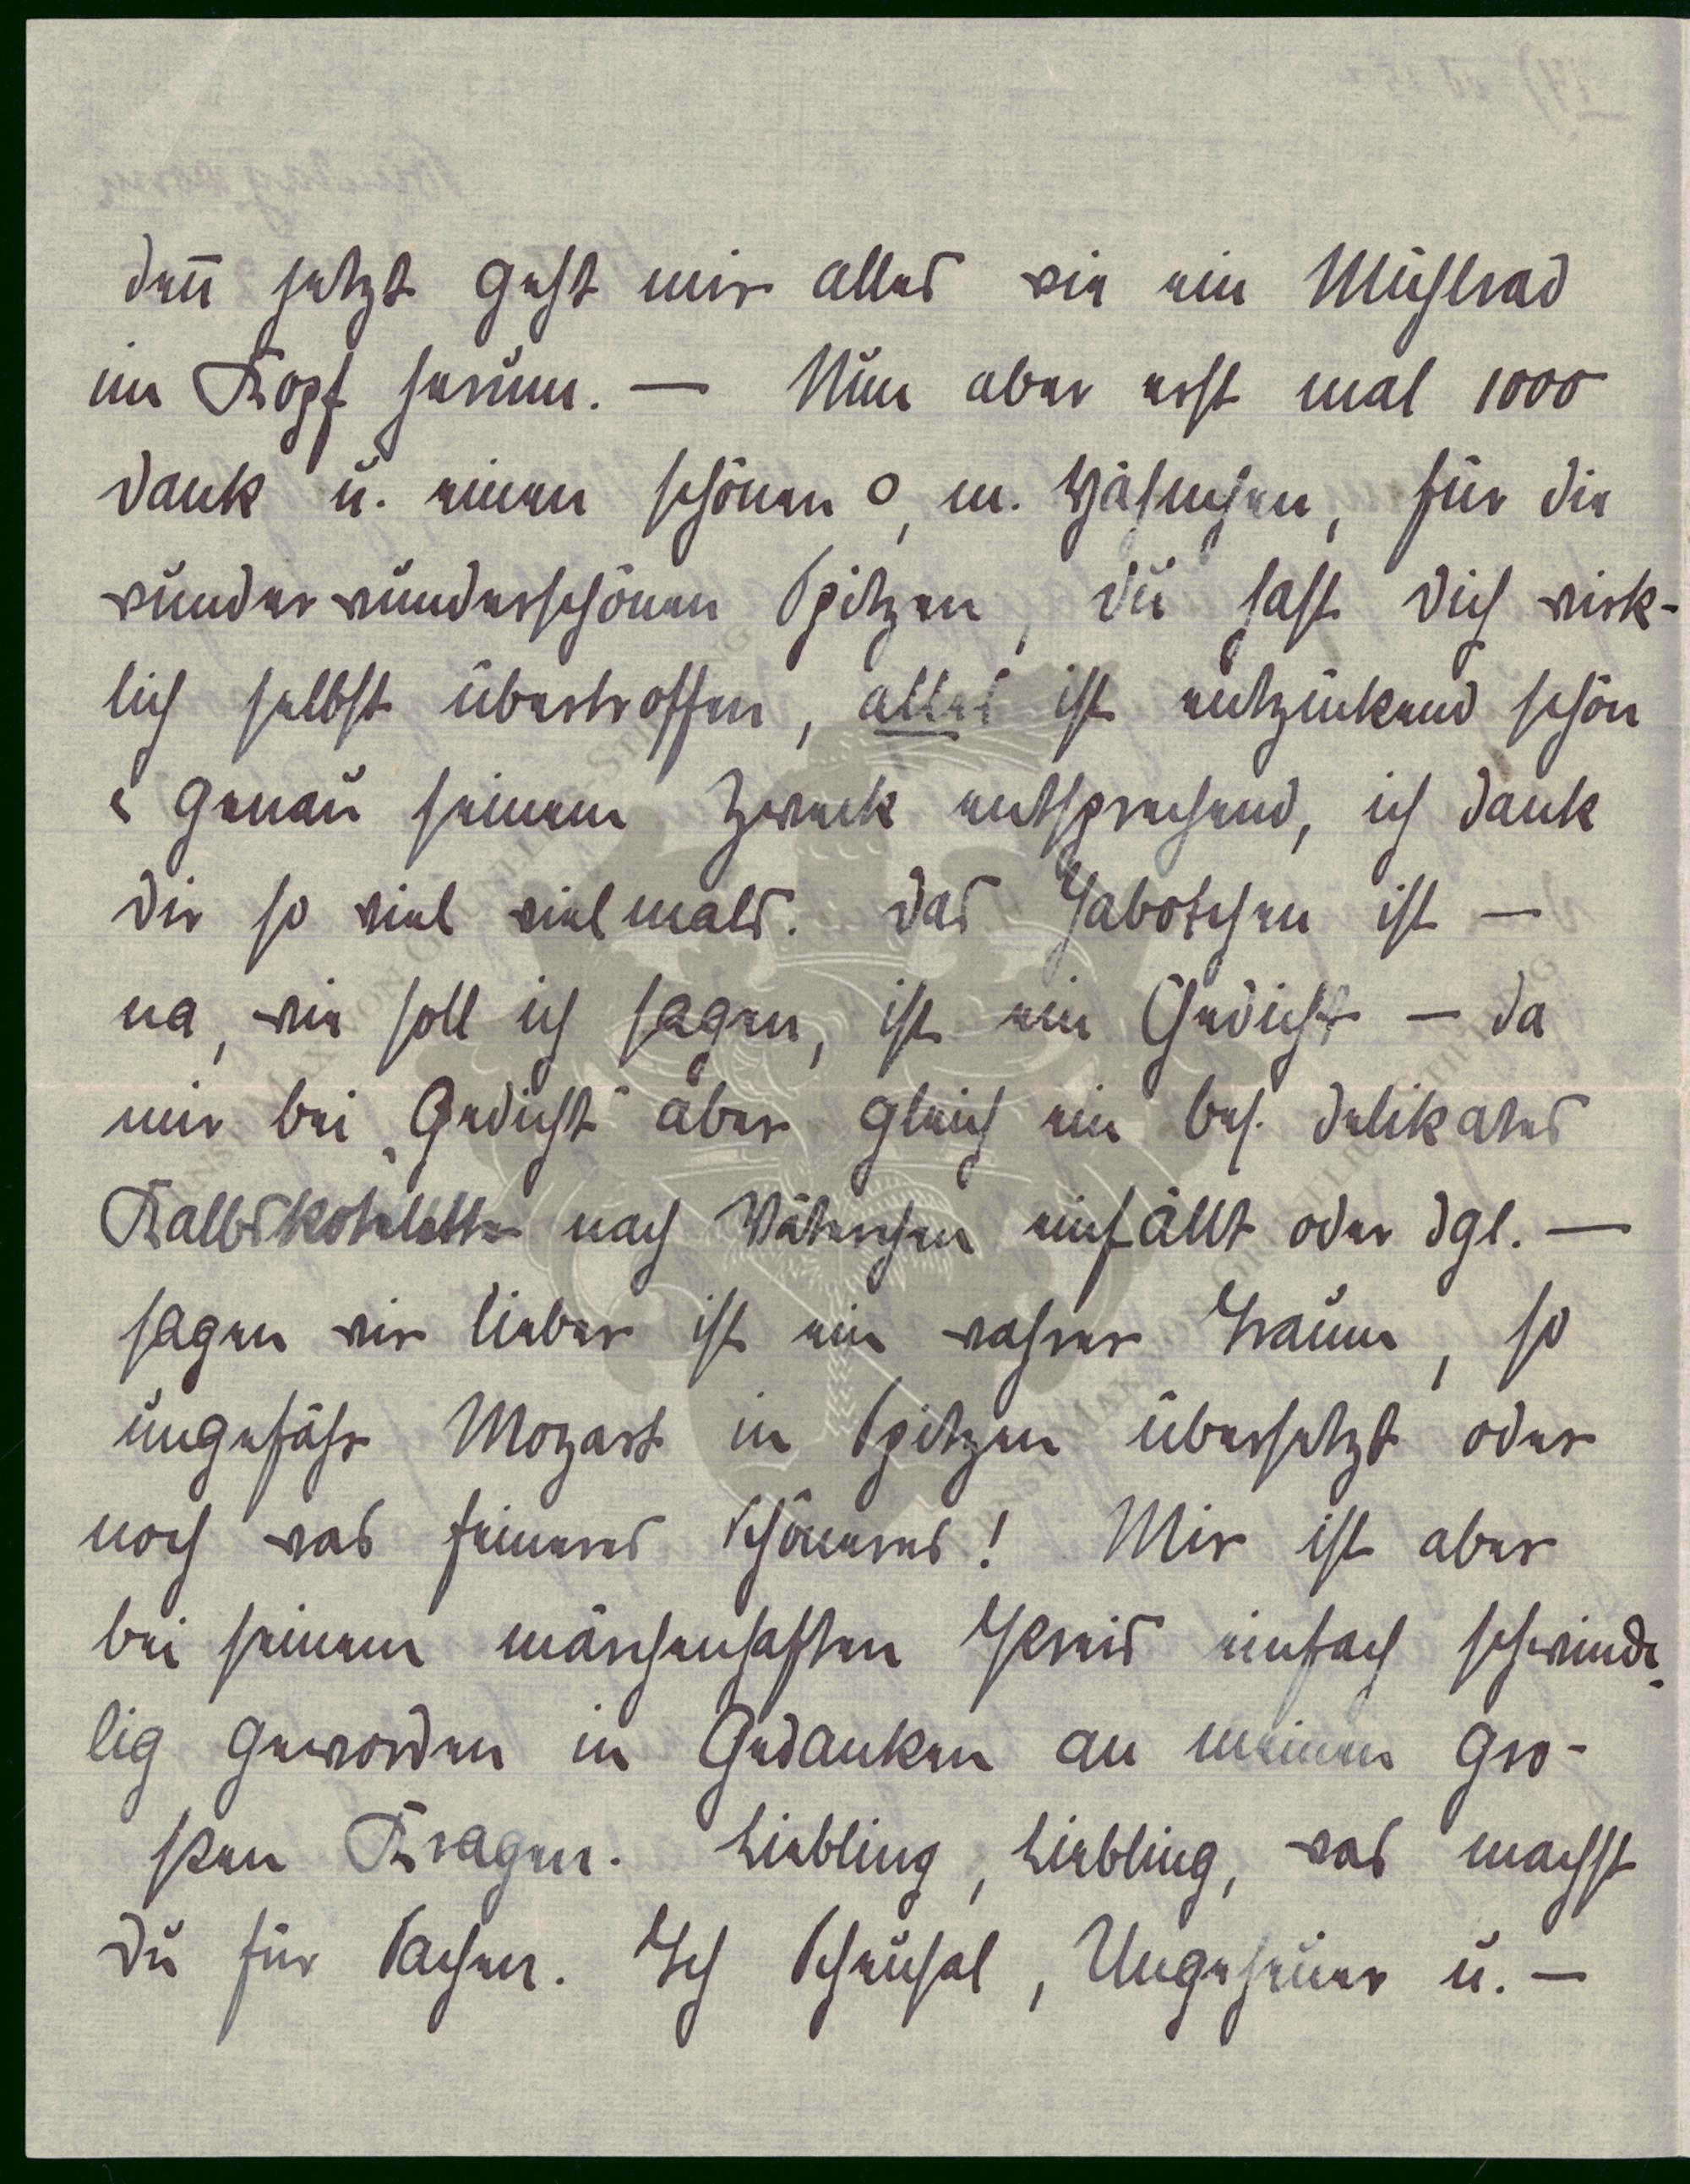 denn jetzt geht mir alles wie ein Mühlrad
im Kopf herum. — Nun aber erst mal 1000
Dank u. einen schönen o, m. Hähnchen, für die
wunderwunderschönen Spitzen, du hast dich wirk-
lich selbst übertroffen, alles ist entzückend schön
& genau seinem Zweck entsprechend, ich dank
dir so viel vielmals. Das Jabotchen ist —
na, wie soll ich sagen, ist ein Gedicht — da
mir bei „Gedicht" aber gleich ein bes. delikates
Kalbskotelette nach Väterchen einfällt oder dgl. —
sagen wir lieber ist ein wahrer Traum, so
ungefähr Mozart in Spitzen übersetzt oder
noch was feineres Schöneres! Mir ist aber
bei seinem märchenhaften Preis einfach schwind-
lig geworden in Gedanken an meinen gro-
ßen Kragen. Liebling, Liebling, was machst
du für Sachen. Ich Scheusal, Ungeheuer u. —